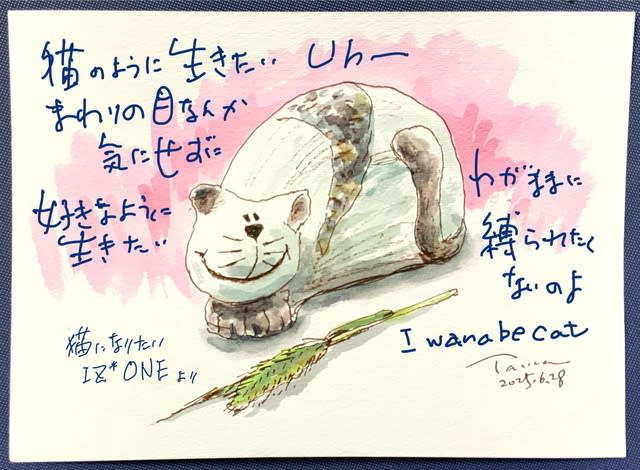 猫のように生きたい Uh ー
まわりの目なんか
気にせずに
好きなように
生きたい
わがままに
縛られたく
ないのよ
I wanabe cat
猫になりたい
IZ*ONEより
2025.6.28